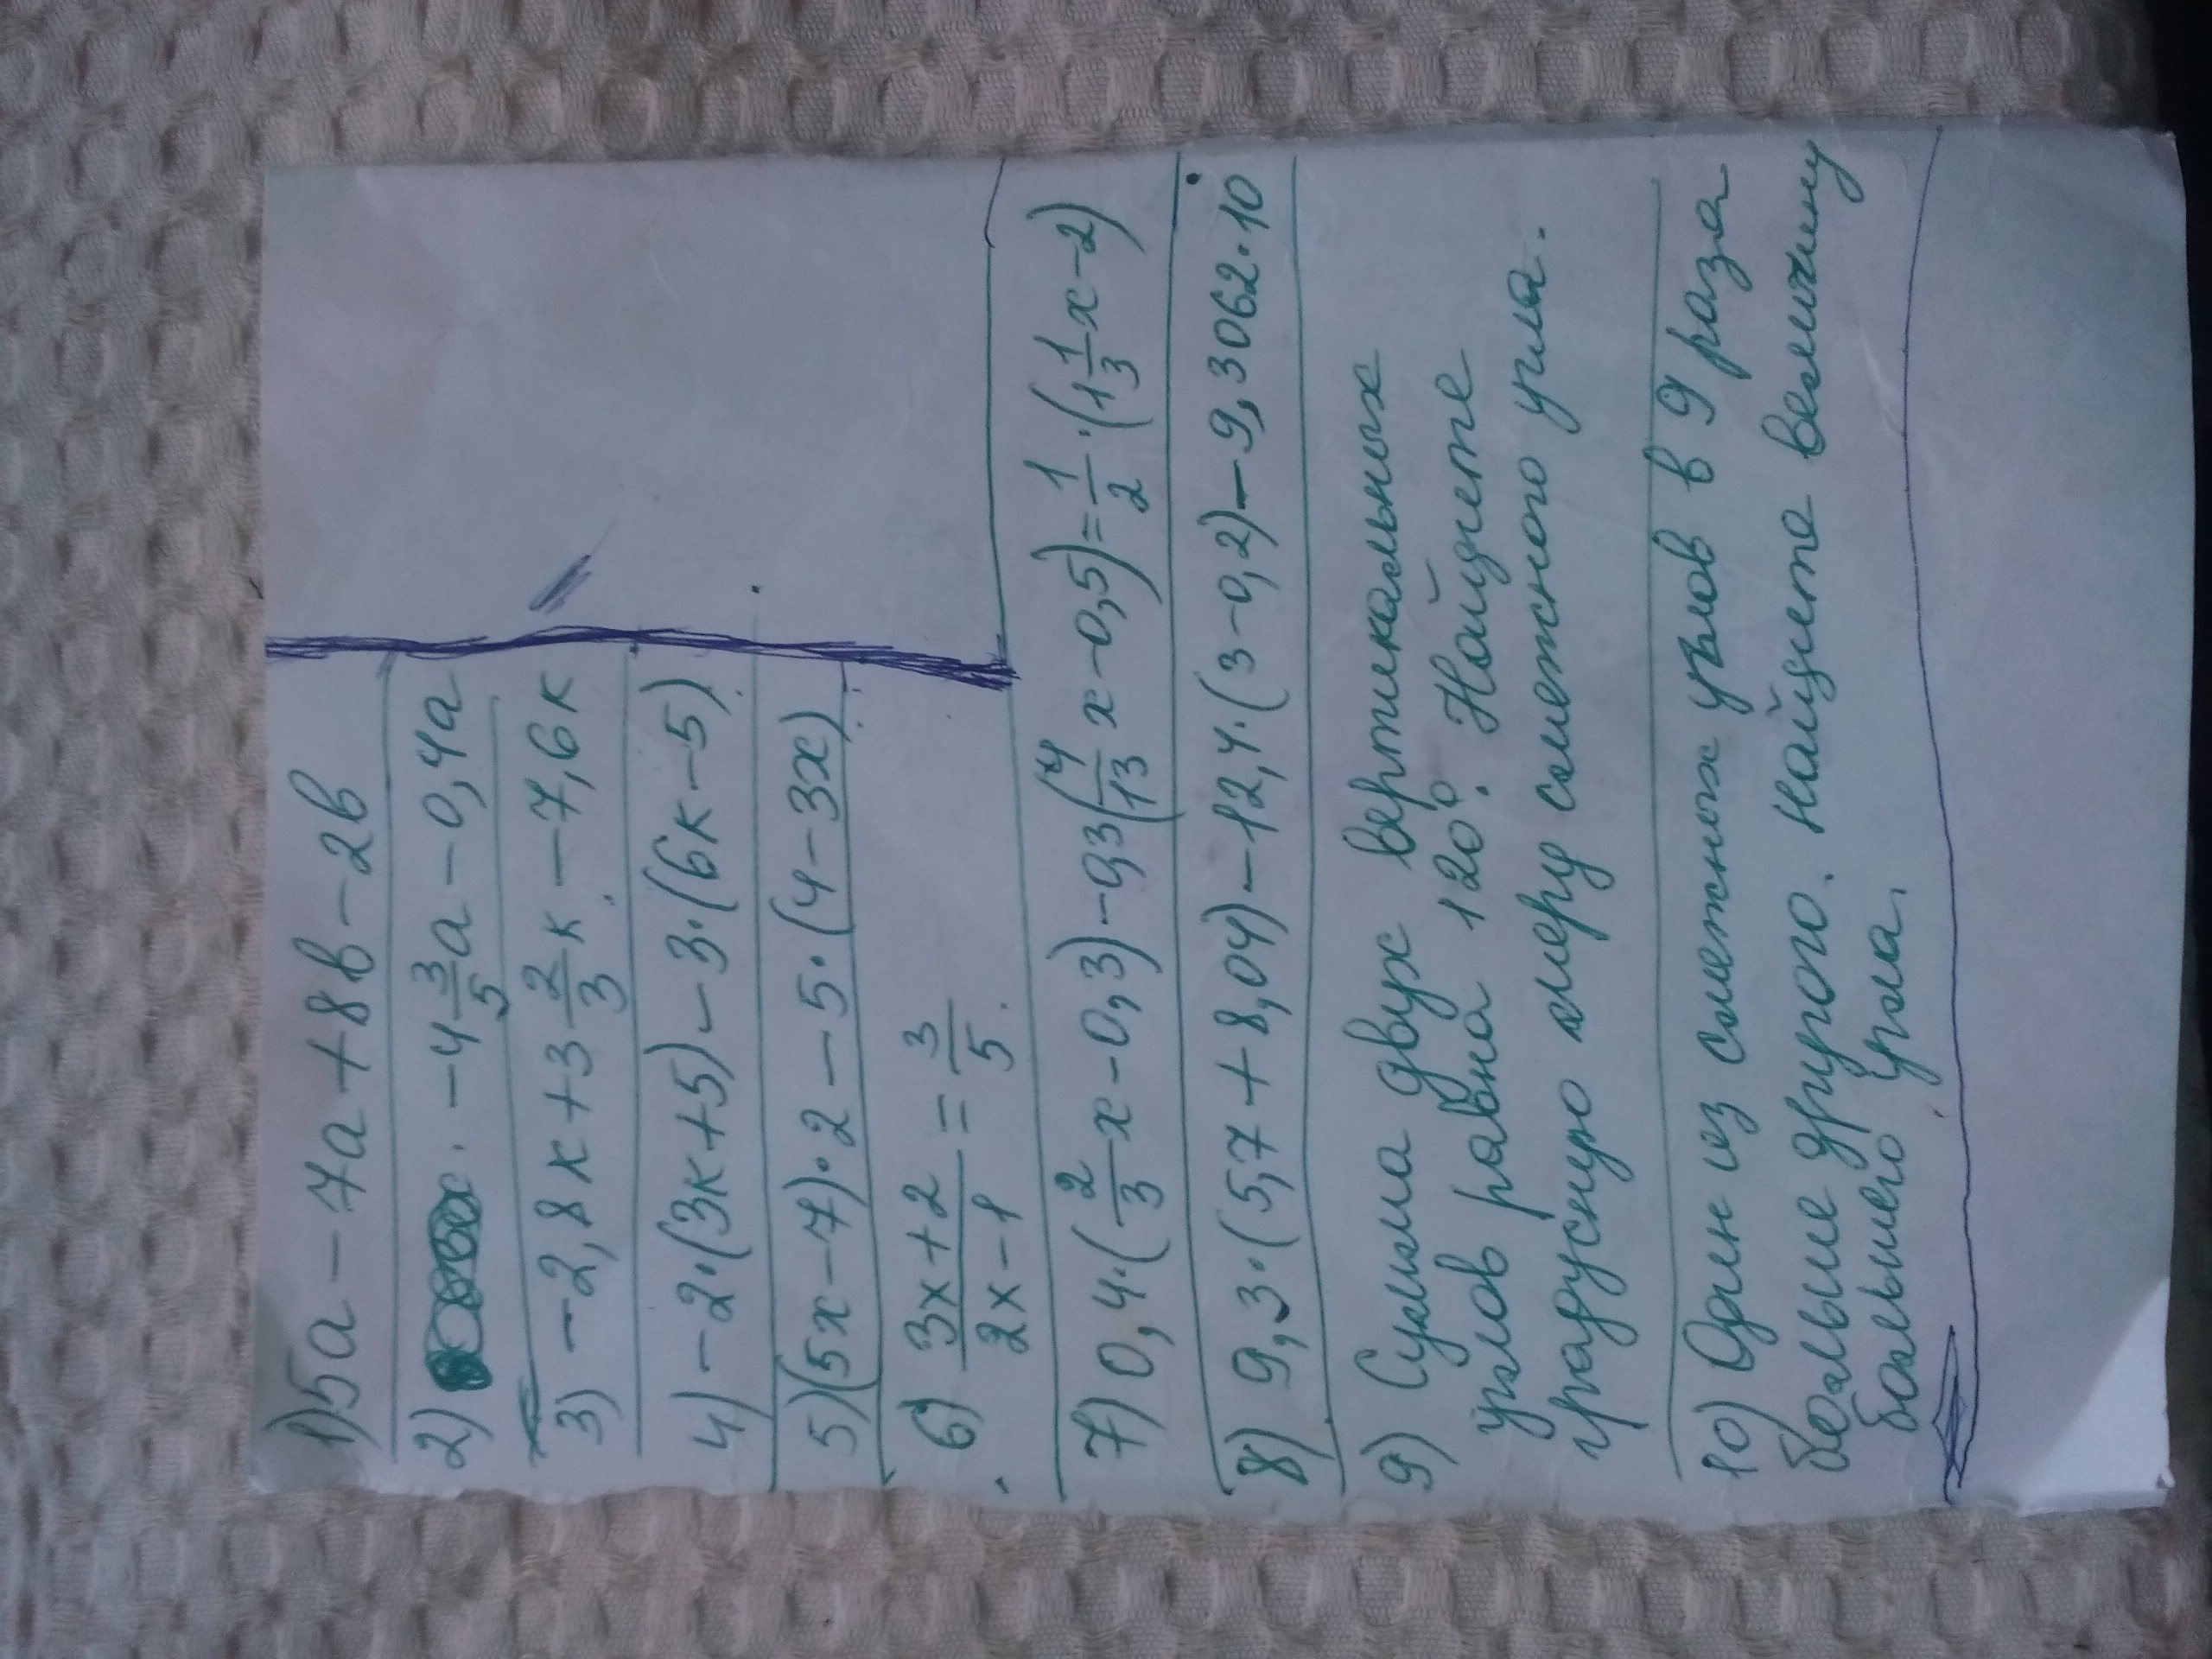 1) 5a - 7a + 8в - 2в
2) - 4 3/5 a - 0,4a
3) - 2,8к + 3 2/3 к - 7,6к
4) - 2·(3к+5) - 3·(6к-5)
5) (5x-7)·2 - 5·(4-3x)
6) (3x+2)/(2x-1) = 3/5
7) 0,4·(2/3 x - 0,3) - 0,3(4/13 x - 0,5) = 1/2·(1 1/3 x - 2)
8) 9,3·(5,7 + 8,04) - 12,4·(3-0,2) - 9,3062·10
9) Сумма двух вертикальных
углов равна 120°. Найдите
градусную меру смежного угла.
10) Один из смежных углов в 9 раза
больше другого. найдите величину
большего угла.